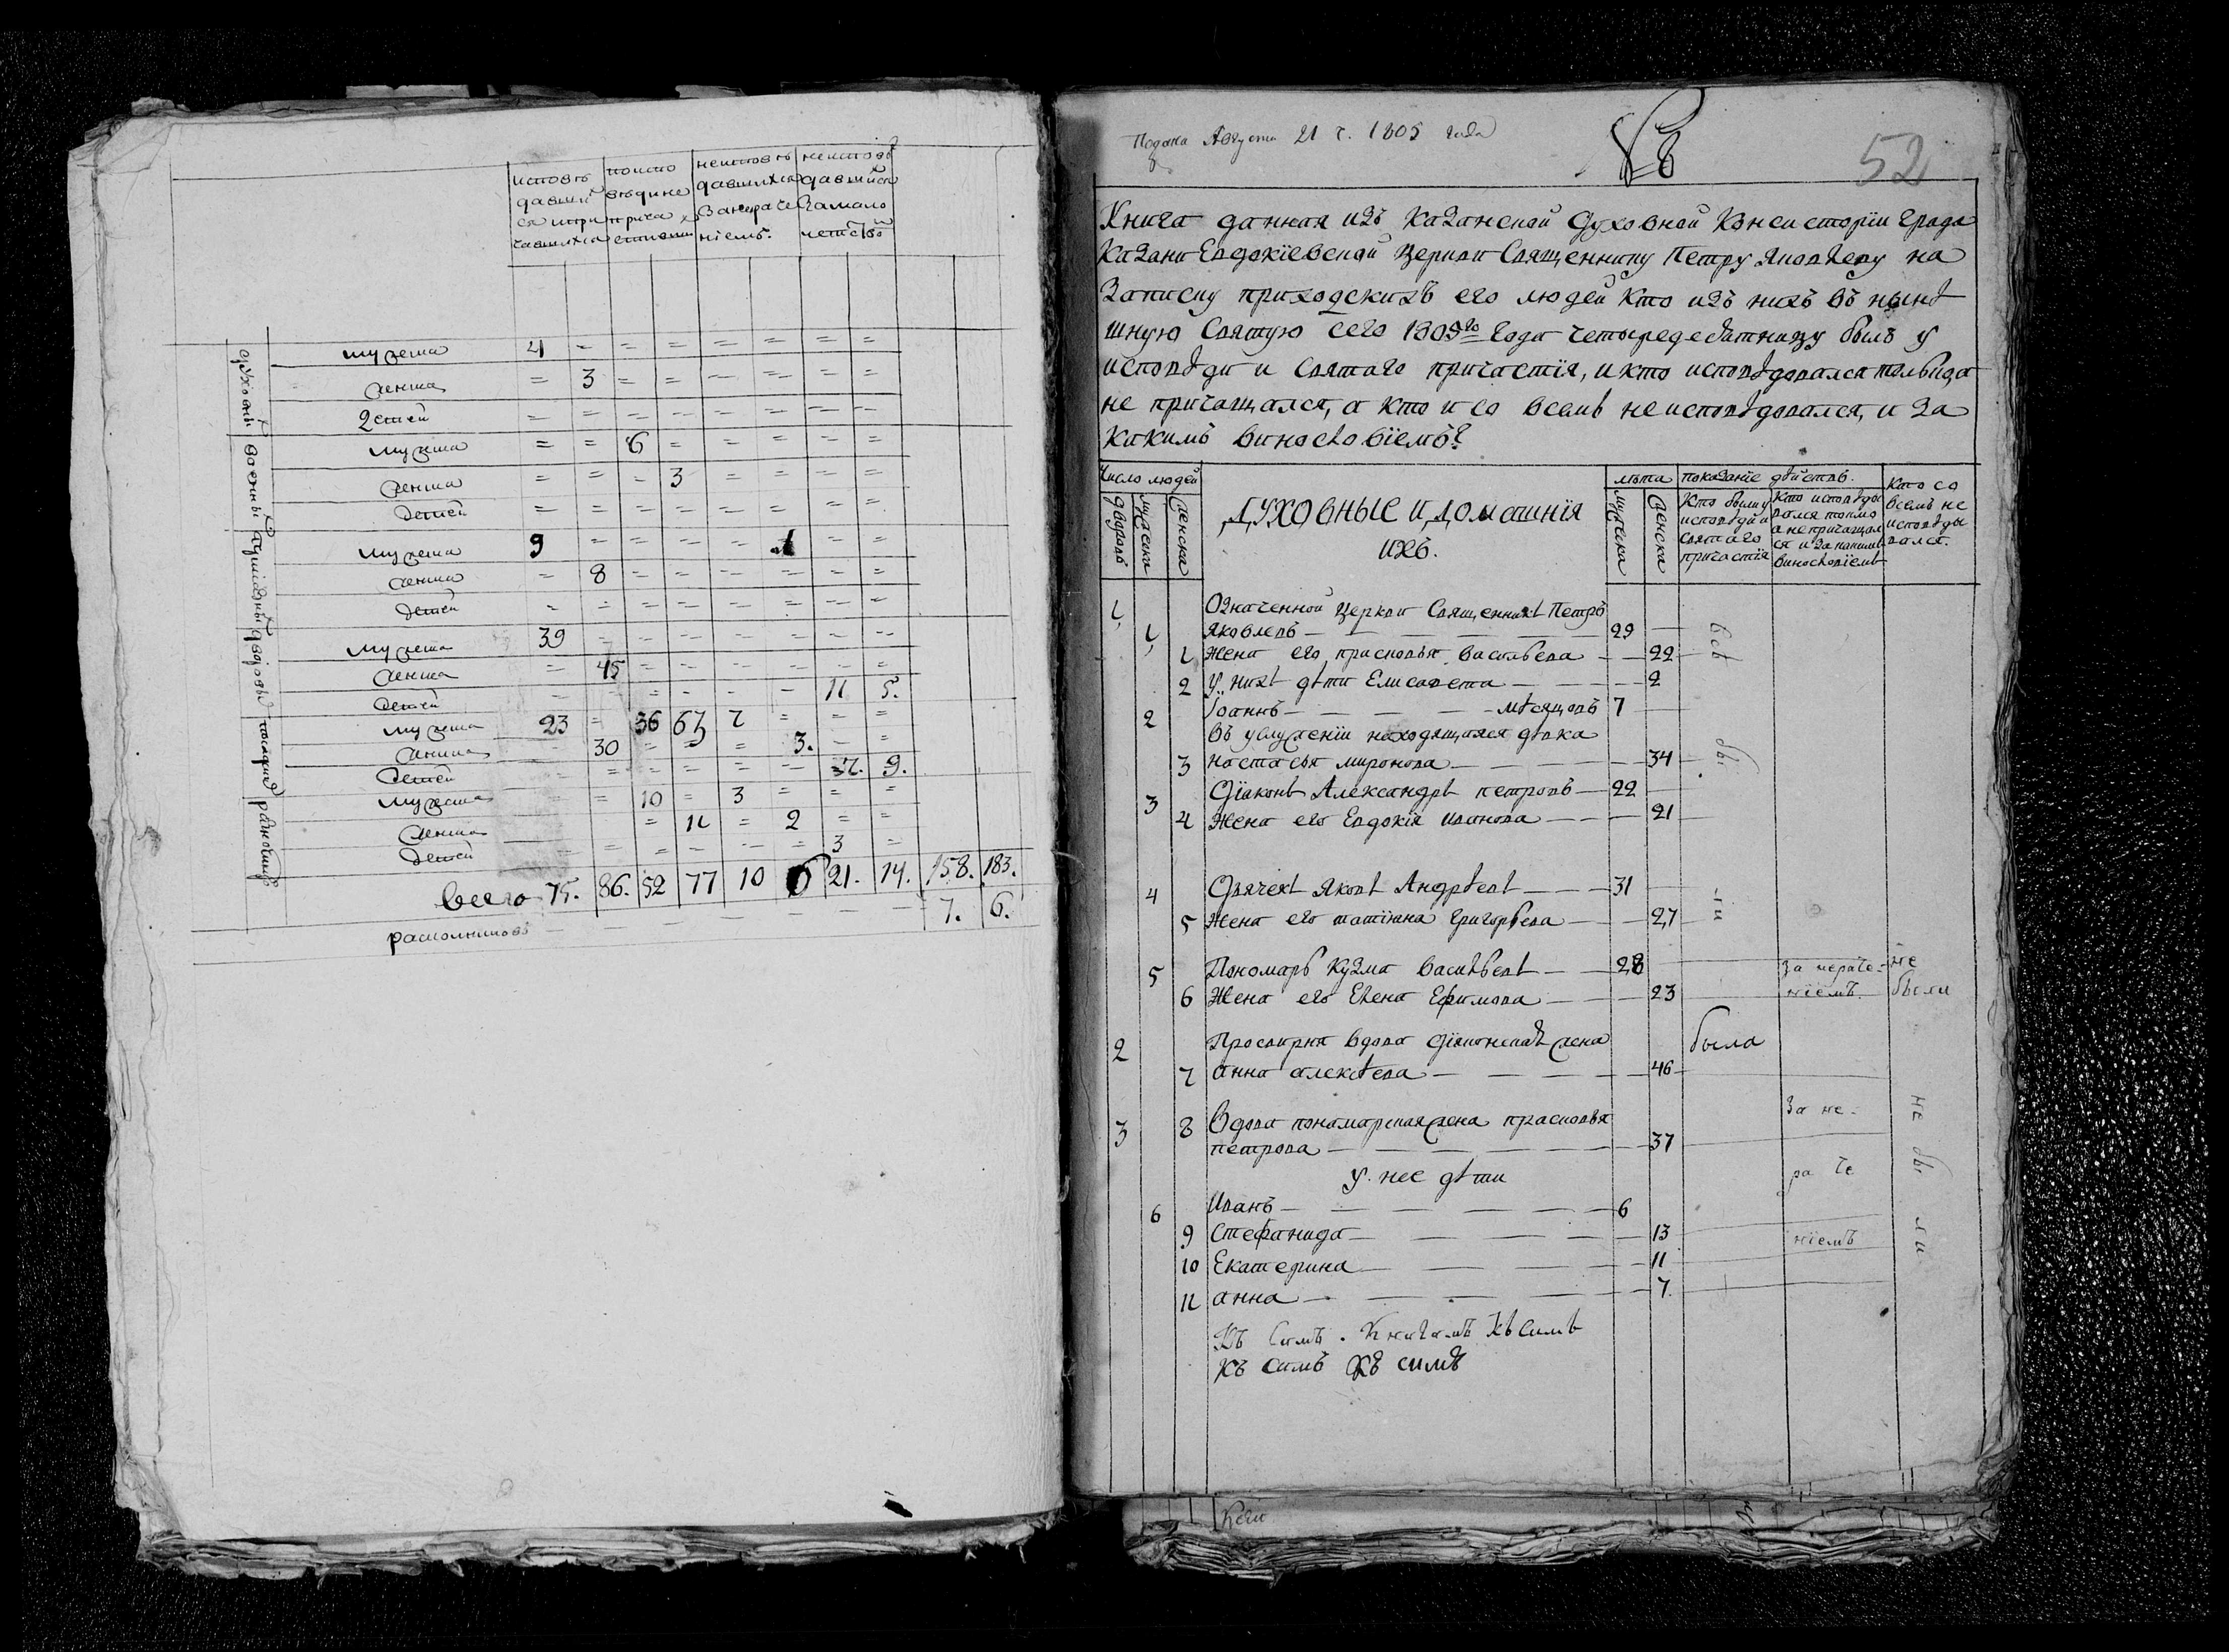 исповѣ давшихся и при чавшихся | испо вѣди не прича стивши | неисповѣ давшихся за нераче ніемъ. | неисповѣ давшихся за мало летство
духовны
мужеска 4 = = = = = = =
женска = 3 = = = = = =
детей = = = = = = = =
военны
мужеска = = 6 = = = = =
женска = = = 3 = = = =
детей = = = = = = = =
мужеска 9 = = = = 1 = =
женска = 8 = = = = = =
детей = = = = = = = =
дворовы
мужеска 39 = = = = = = =
женска = 45 = = = = = =
детей = = = = = = 11 5.
посадскія
мужеска 23 = 36 63 7 = = =
женска = 30 = = = 3. = =
детей = = = = = = 7. 9.
разночинцы
мужеска = = 10 = 3 = = =
женска = = = 11 = 2 = =
детей = = = = = = 3 =
всего 75. 86. 52 77 10 6 21. 14. 158. 183.
раскольниковъ — — — — — — 7. 6.
Подана Августа 21 ч. 1805 года
52
Книга данная изъ Казанской Духовной Консисторіи града
Казани Евдокіевской Церкви Священнику Петру Яковлеву на
Записку приходскихъ его людей кто изъ нихъ въ нынѣ
шнюю Святую сего 1805го года четыредесятницу былъ у
исповѣди и святаго причастія, и кто исповѣдовался только да
не причащался, а кто и со всемъ не исповѣдовался, и за
какимъ винословіемъ?
Число людей | ДУХОВНЫЕ И ДОМАШНІЯ ИХЪ. | лѣта | показаніе дѣйствъ. | Кто со всемъ не исповѣды вался.
дворовъ | мужеска | женска | мужеска | женска | Кто были у исповѣди и святаго причастія | Кто исповѣды вался токмо а не причащал ся и за какимъ винословіемъ
1, Означенной Церкви Священникъ Петръ
1, Яковлевъ — 29
1 Жена его прасковья васильева — 22
2 У нихъ дѣти Елисавета — 2
2 Іоаннъ — мѣсяцовъ 7
въ услуженіи находящаяся дѣвка
3 настасья миронова — 34
3 Діаконъ Александръ петровъ — 22
4 Жена его Евдокія иванова — 21
4 Дьячекъ Яковъ Андрѣевъ — 31
5 Жена его татіяна григорьева — 27
всѣ бы ли
5 Пономарь Кузма васильевъ — 28 за нераче- не
6 Жена его Елена Ефимова — 23 ніемъ. были
2 Просвирня вдова діяконская жена была
7 анна алексѣева — 46
3 8 Вдова пономарская жена прасковья
петрова — 37
у нее дѣти
6 Иванъ — 6
9 Стефанида — 13
10 Екатерина — 11
11 анна — 7
За не- ра че ніемъ
не бы ли
Къ симъ. Книгамъ Къ симъ
Къ симъ Къ симъ